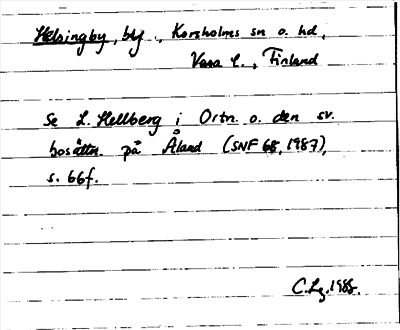 Helsingby, by., Korsholms sn o. hd,
Vasa l., Finland
Se L. Hellberg i Ortn. o. den sv.
bosättn. på Åland (SNF 68, 1987),
s. 66f.
C.Lg. 1988.